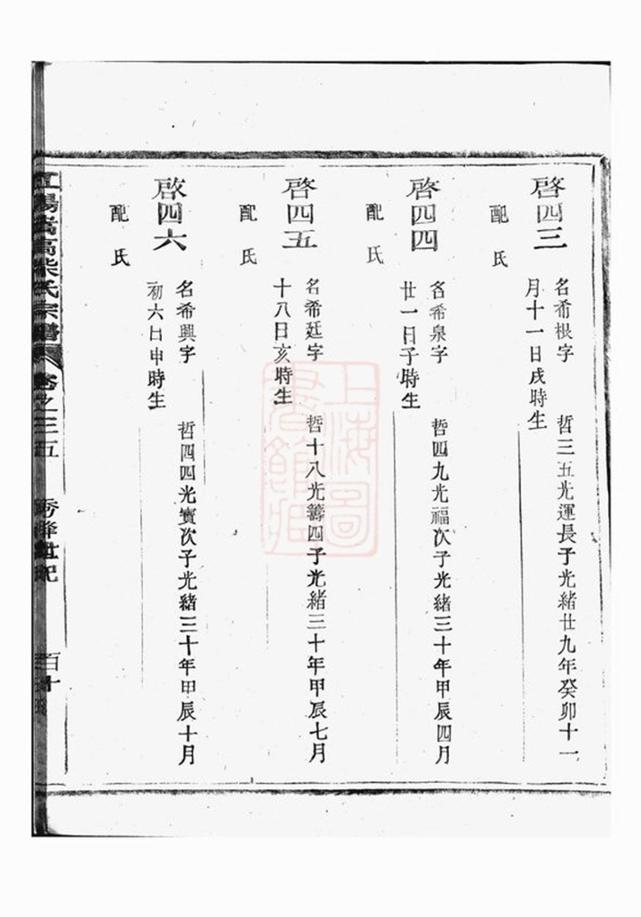 啓四三
名希根字　哲三五光運長子光緒廿九年癸卯十一
月十一日戌時生
配氏
啓四四
名希泉字　哲四九光福次子光緒三十年甲辰四月
廿一日子時生
配氏
啓四五
名希廷字　哲十八光籌四子光緒三十年甲辰七月
十八日亥時生
配氏
啓四六
名希興字　哲四四光實次子光緒三十年甲辰十月
初六日申時生
配氏
高柴氏宗譜
卷之三五
百十
上海圖書館藏